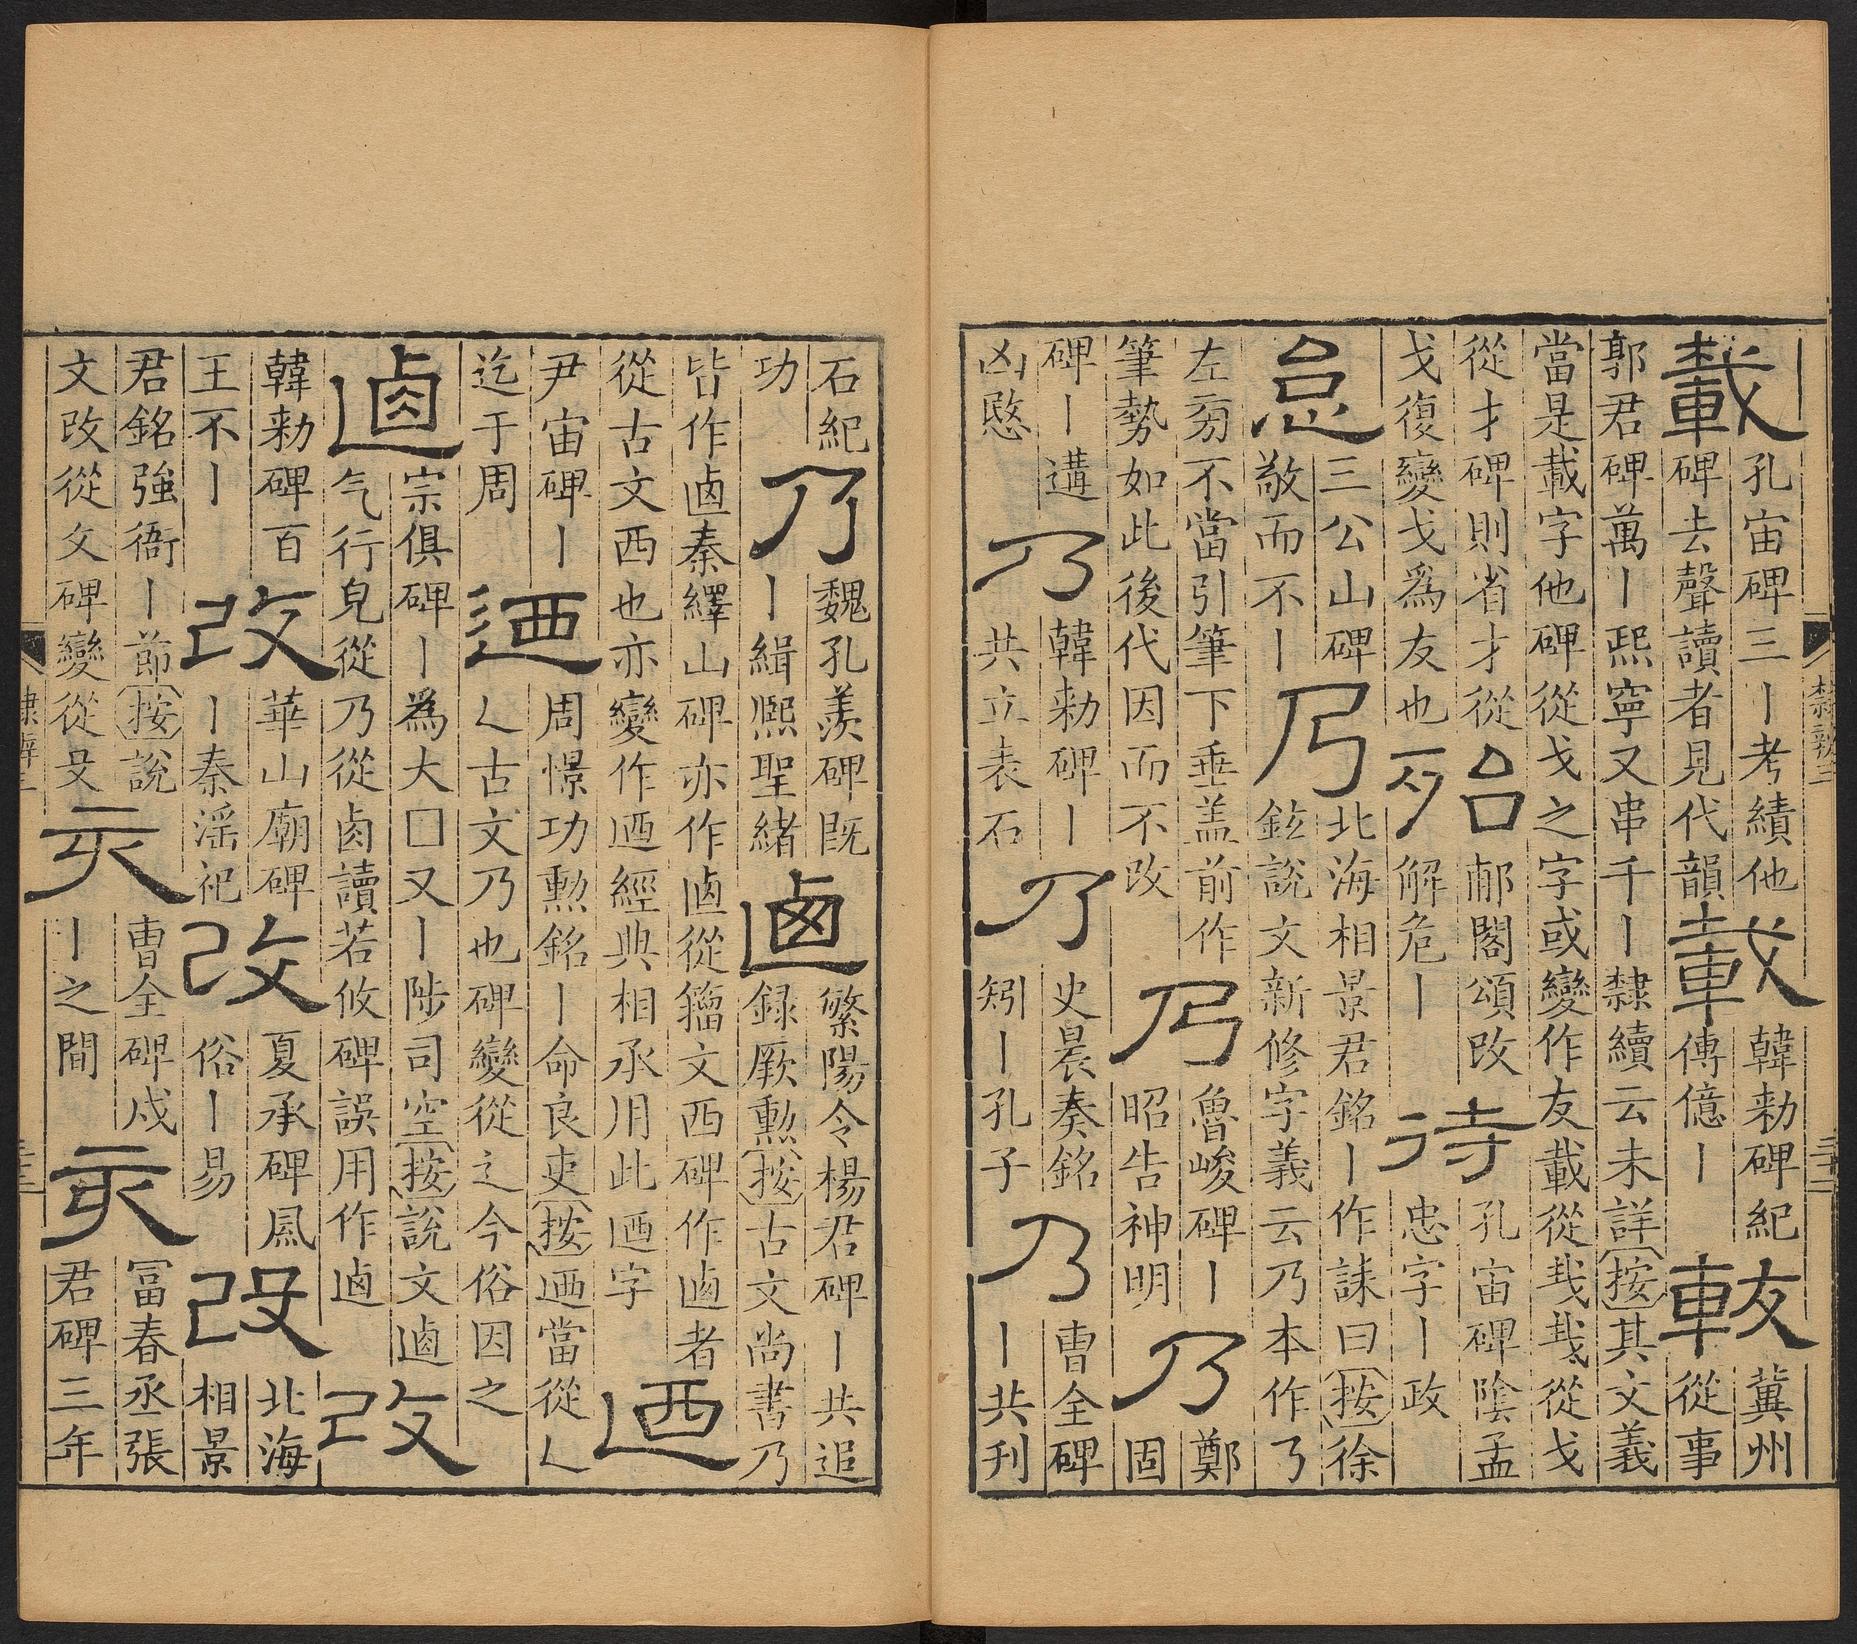 載
孔宙碑三丨考績他
碑去聲讀者見代韻
載
韓勑碑紀
傳億丨
冀州
從事
郭君碑萬丨熙寧又串千丨隸續云未詳按其文義
當是載字他碑從戈之字或變作友載從𢦏𢦏從戈
從才碑則省才從
戈復變戈爲友也
殆
郙閣頌改
解危丨
待
孔宙碑陰孟
忠字丨政
怠
三公山碑
敬而不丨
乃
北海相景君銘丨作誄曰按徐
鉉說文新修字義云乃本作𠄎
左㔟不當引筆下垂盖前作
筆勢如此後代因而不改
乃
魯峻碑丨
昭告神明
乃
鄭
固
碑丨遘
凶愍
乃
韓勑碑丨
共立表石
乃
史晨奏銘
矧丨孔子
乃
曹全碑
丨共刊
隸辨三
三十二
石紀
功
乃
魏孔羡碑既
丨緝熙聖緒
逌
繁陽令楊君碑丨共追
録厥勲按古文尚書乃
皆作逌秦繹山碑亦作逌從籒文西碑作逌者
從古文西也亦變作迺經典相承用此迺字
迺
尹宙碑丨
迄于周
迺
周憬功勲銘丨命良吏按迺當從乚
乚古文乃也碑變從辶今俗因之
逌
宗俱碑丨爲大□又丨陟司空按說文逌
气行皃從乃從卤讀若攸碑誤用作逌
改
韓勑碑百
王不丨
改
華山廟碑
丨秦淫祀
改
夏承碑風
俗丨易
改
北海
相景
君銘強衙丨節按說
文改從攵碑變從殳
亥
曹全碑戍
丨之間
亥
冨春丞張
君碑三年